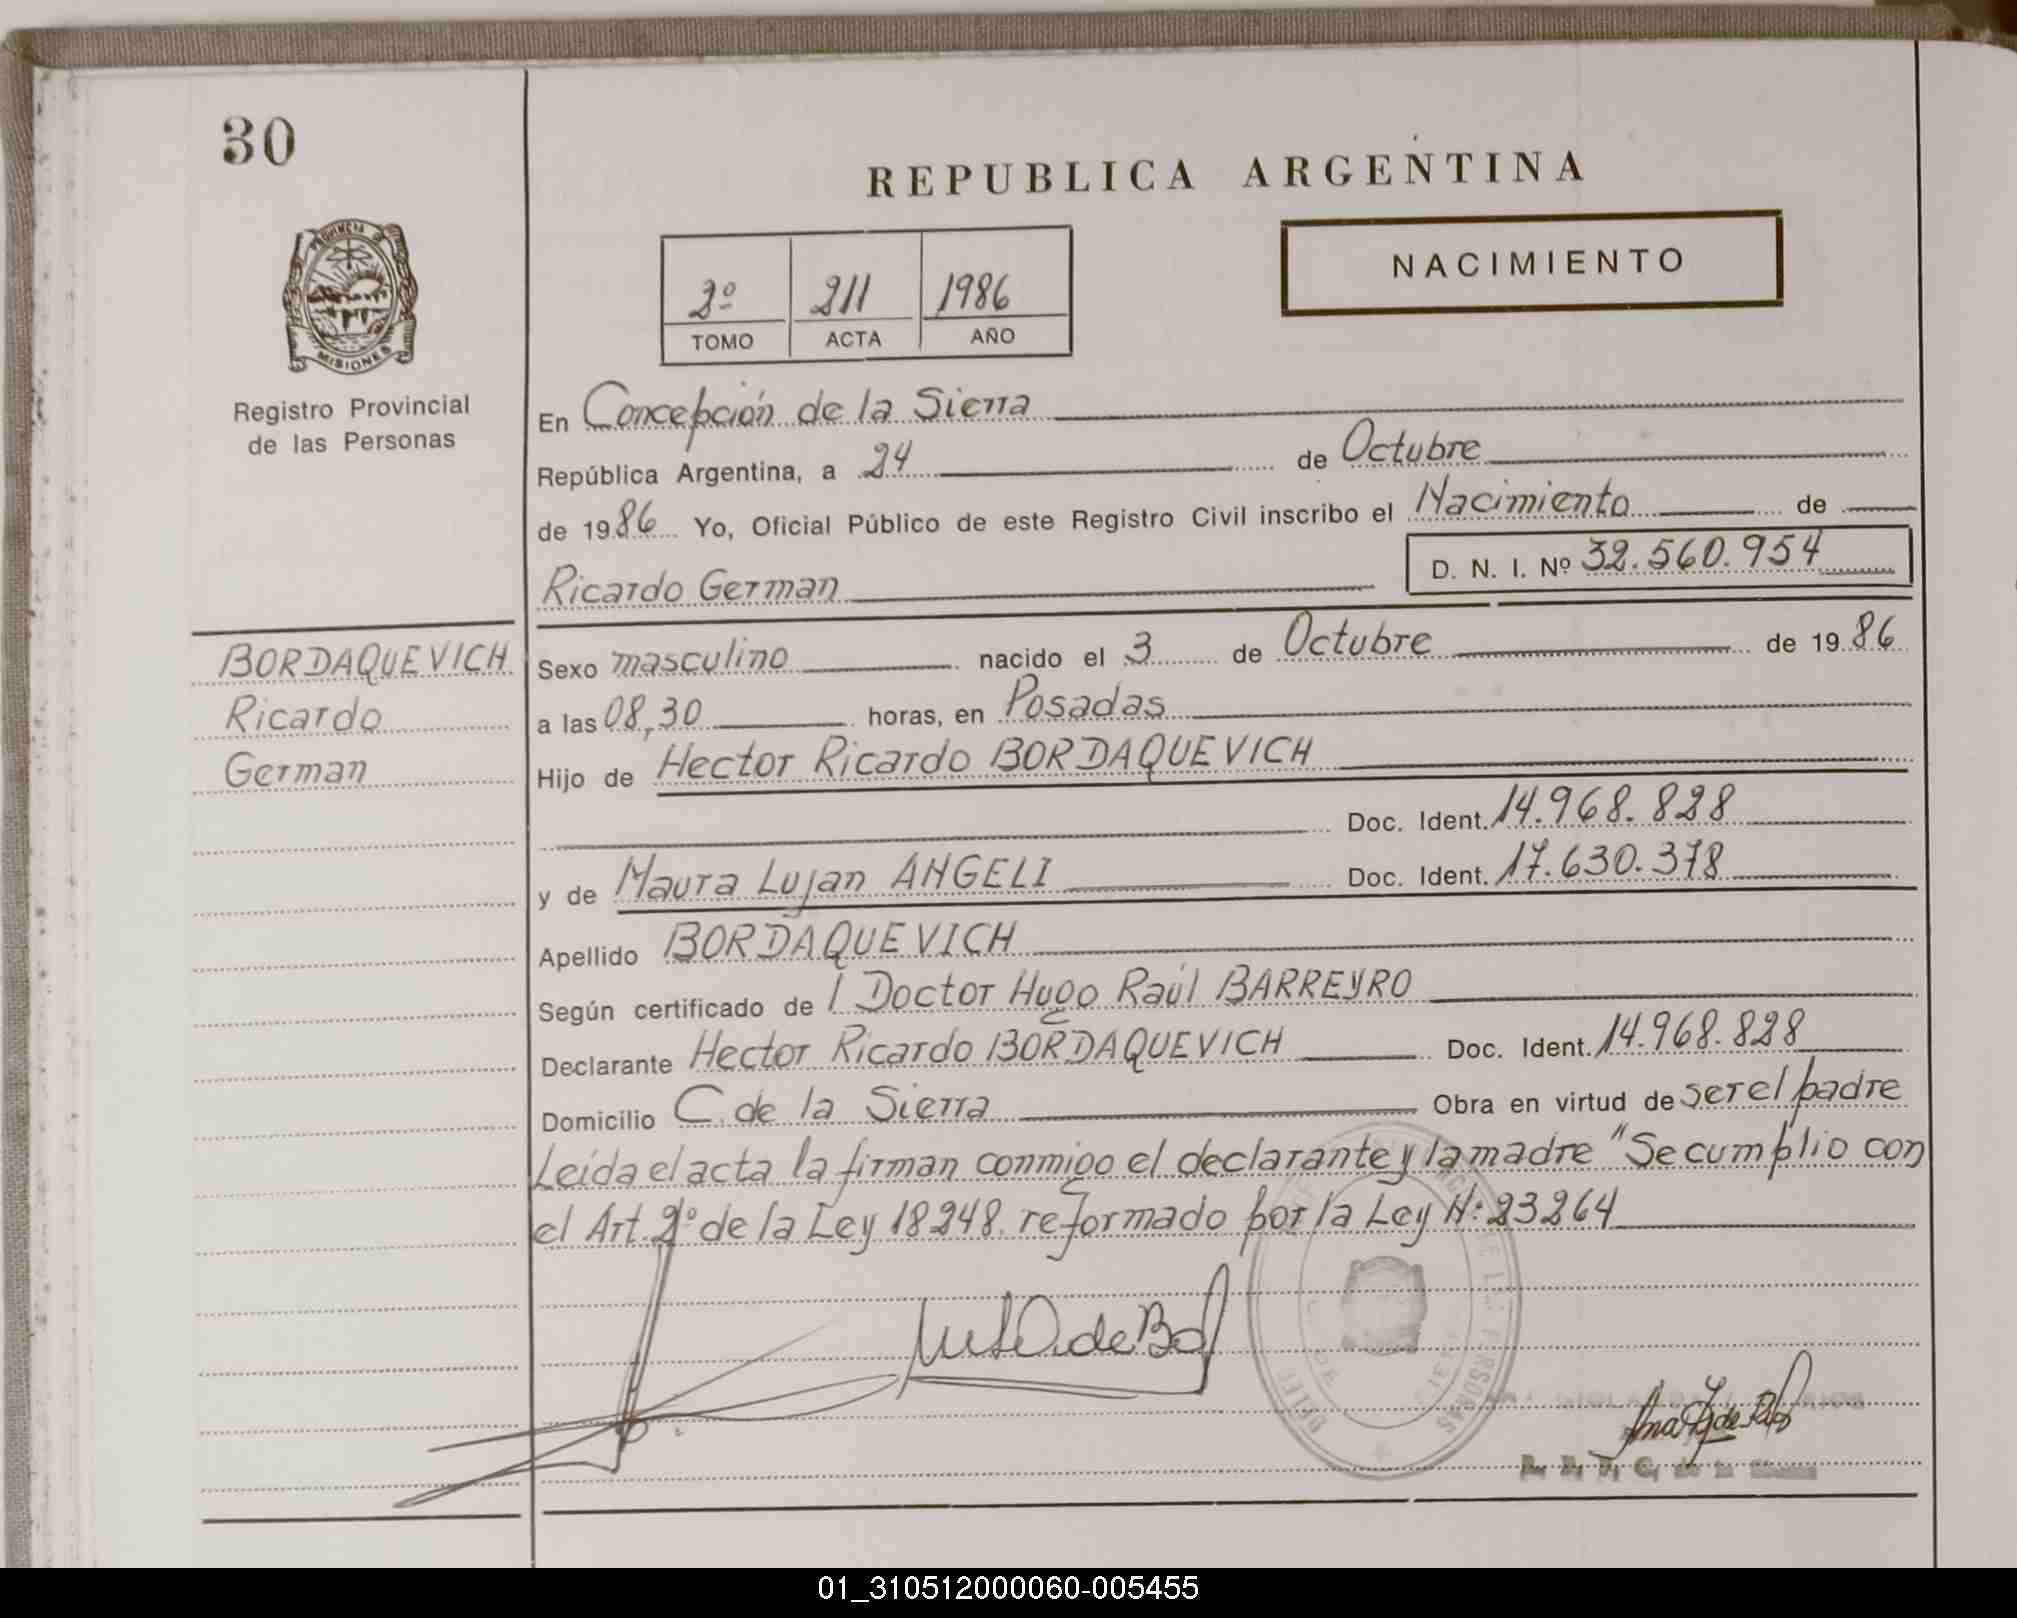 30
PROVINCIA DE
MISIONES
Registro Provincial
de las Personas
REPUBLICA ARGENTINA
2º 211 1986
TOMO ACTA AÑO
NACIMIENTO
En Concepción de la Sierra
República Argentina, a 24 de Octubre
de 1986 Yo, Oficial Público de este Registro Civil inscribo el Nacimiento de
Ricardo German D. N. I. Nº 32.560.954
BORDAQUEVICH
Ricardo
German
Sexo masculino nacido el 3 de Octubre de 1986
a las 08,30 horas, en Posadas
Hijo de Hector Ricardo BORDAQUEVICH
Doc. Ident. 14.968.828
y de Maura Lujan ANGELI Doc. Ident. 17.630.378
Apellido BORDAQUEVICH
Según certificado de l Doctor Hugo Raúl BARREYRO
Declarante Hector Ricardo BORDAQUEVICH Doc. Ident. 14.968.828
Domicilio C. de la Sierra Obra en virtud de ser el padre
Leída el acta la firman conmigo el declarante y la madre "Se cumplio con
el Art. 2º de la Ley 18248. reformado por la Ley N: 23264
01_310512000060-005455